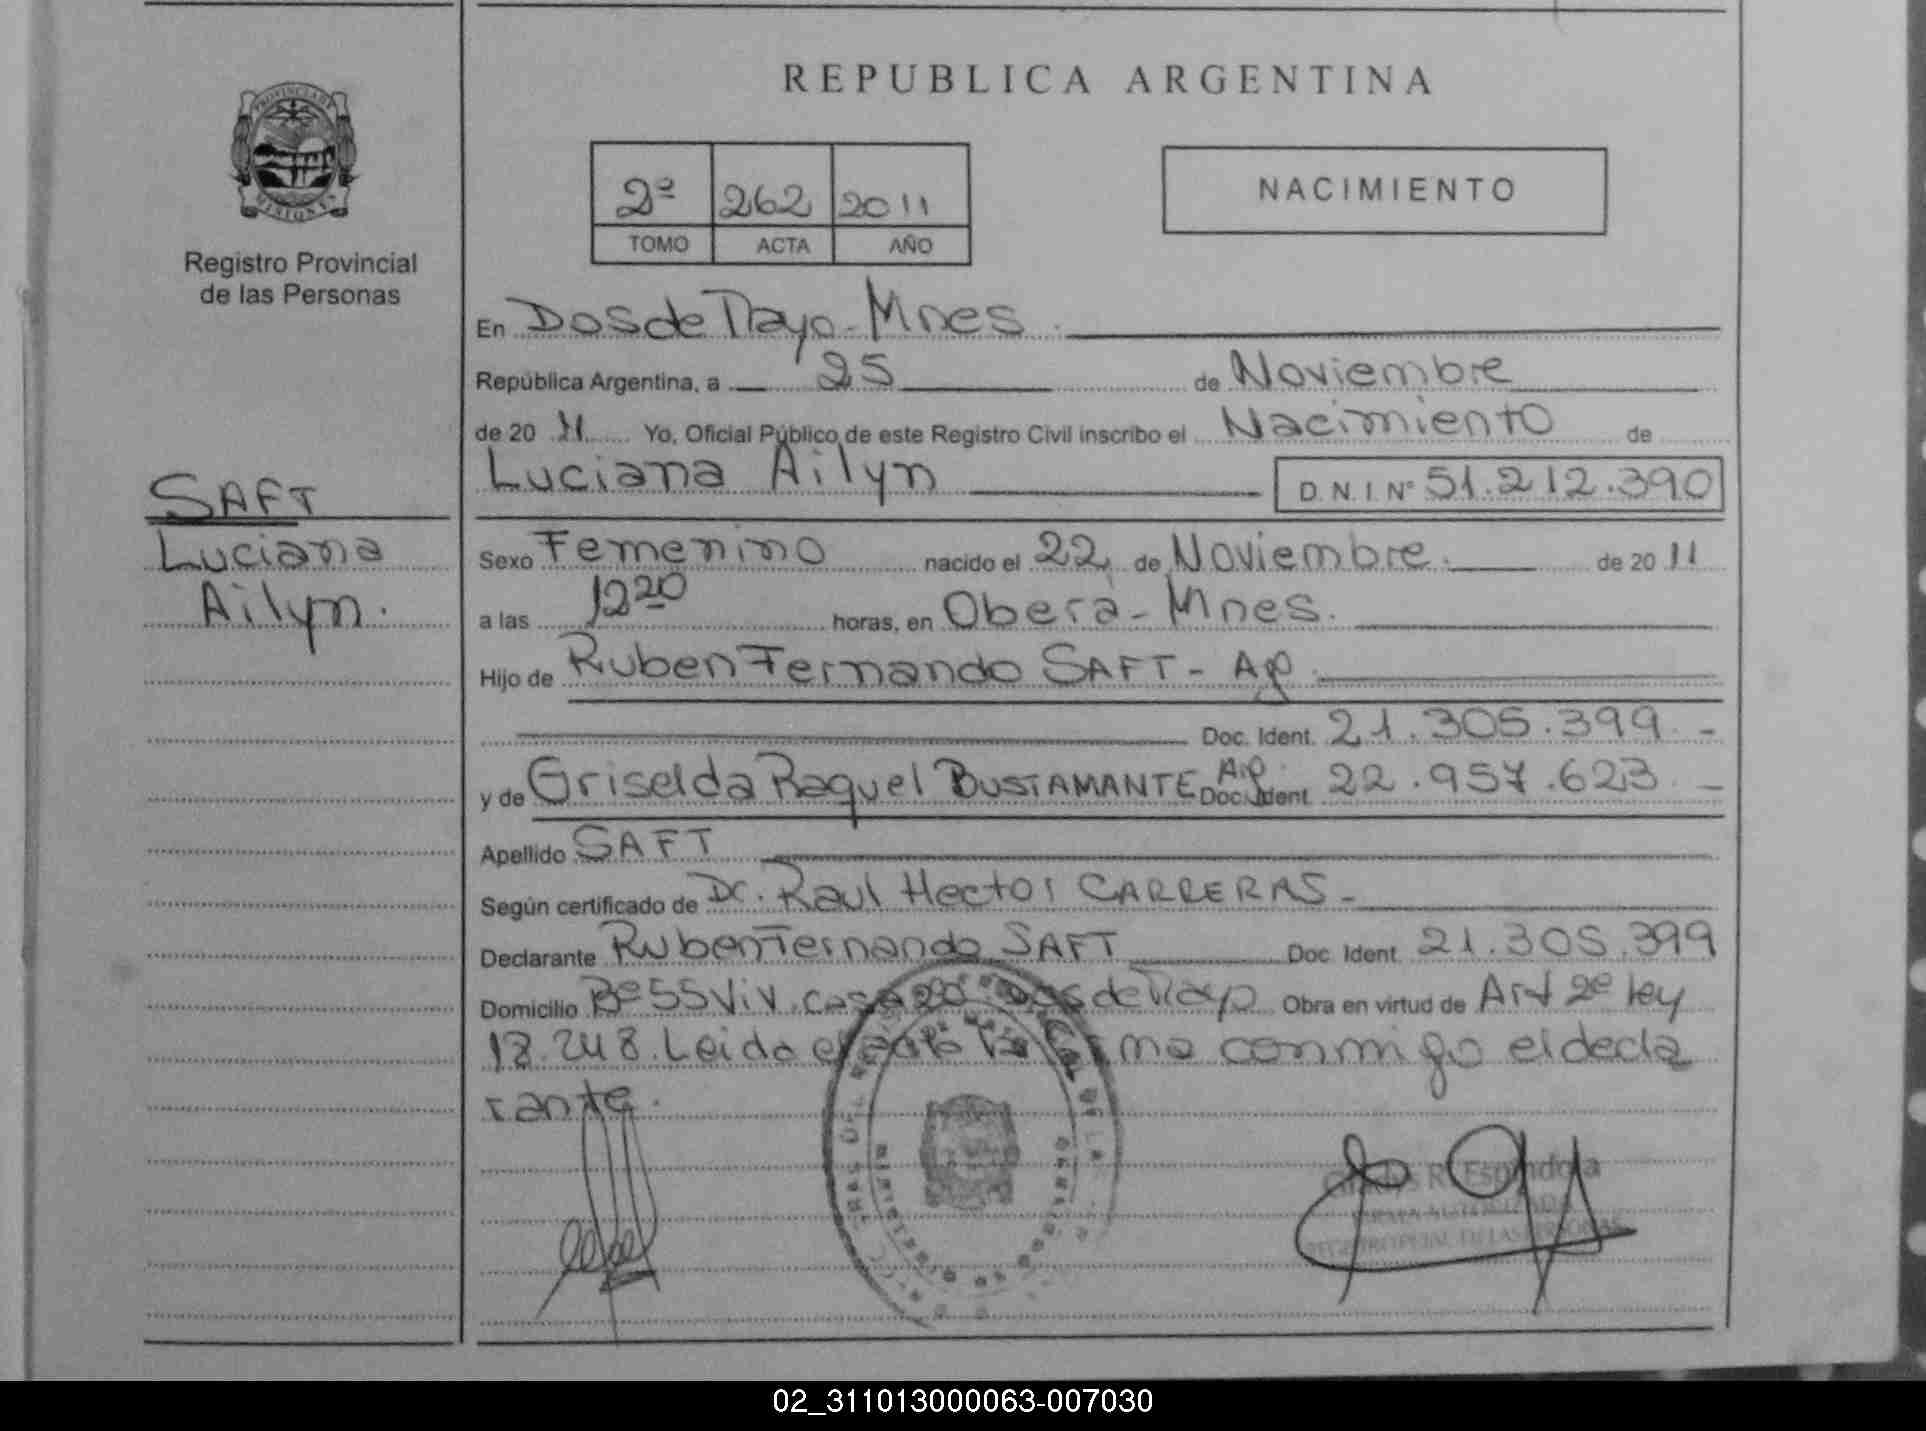 REPUBLICA ARGENTINA
PROVINCIA DE
MISIONES
Registro Provincial
de las Personas
2º 262 2011
TOMO ACTA AÑO
NACIMIENTO
En Dos de Mayo - Mnes.
República Argentina, a 25 de Noviembre
de 20 11 Yo, Oficial Público de este Registro Civil inscribo el Nacimiento de
Luciana Ailyn D.N.I. Nº 51.212.390
SAFT
Luciana
Ailyn.
Sexo Femenino nacido el 22 de Noviembre. de 20 11
a las 12 20 horas, en Oberá - Mnes.
Hijo de Ruben Fernando SAFT - Ap
Doc. Ident. 21.305.399 -
y de Griselda Raquel BUSTAMANTE Ap. Doc. Ident. 22.957.623 -
Apellido SAFT
Según certificado de Dr. Raul Hector CARRERAS -
Declarante Ruben Fernando SAFT Doc. Ident. 21.305.399
Domicilio Bº 55 Viv. casa Dos de Mayo Obra en virtud de Art 2º Ley
18.248. Leida el acta la firma conmigo el decla
rante.
R. Espindola
FIRMA AUTORIZADA
REGISTRO PCIAL. DE LAS PERSONAS
02_311013000063-007030